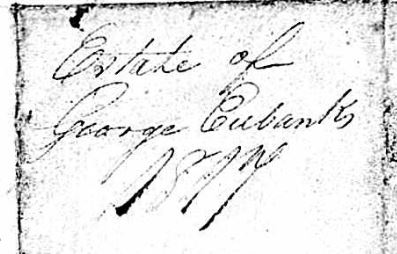 Estate of
George Eubanks
1817